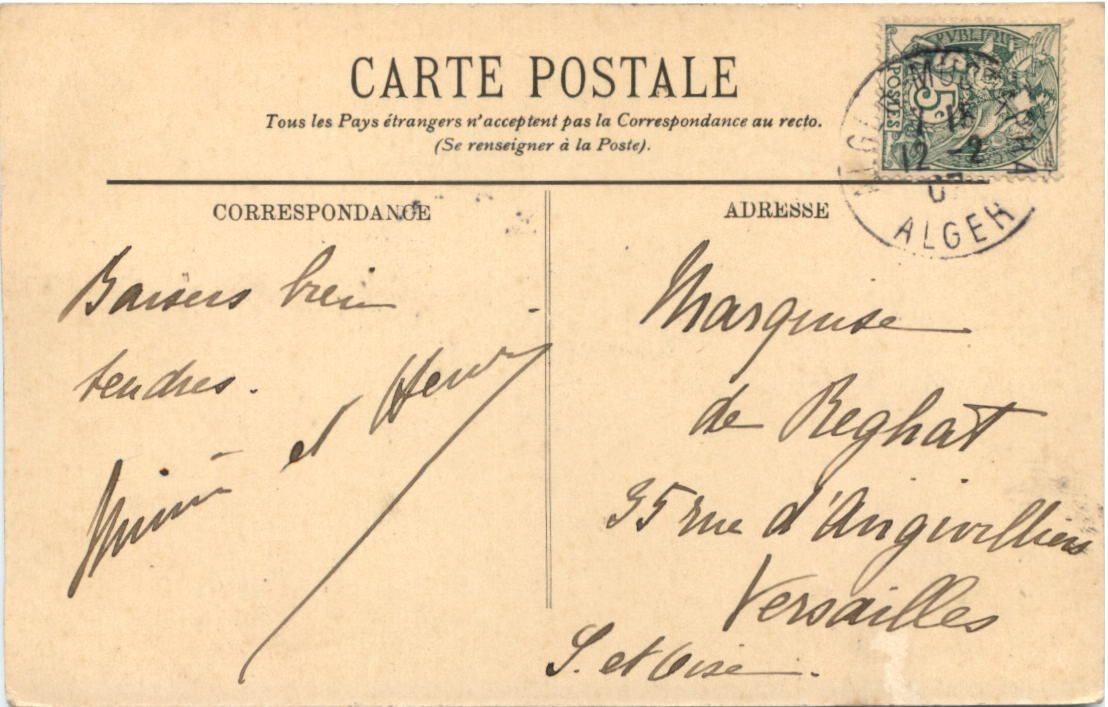 CARTE POSTALE
Tous les Pays étrangers n'acceptent pas la Correspondance au recto.
(Se renseigner à la Poste).
RÉPUBLIQUE
POSTES
5
c
ALGER MUSTAPHA
12 -2
07
ALGER
CORRESPONDANCE
Baisers bien
tendres.
et Henri
ADRESSE
Marquise
de Reghat
35 rue d'Angivilliers
Versailles
S. et Oise.